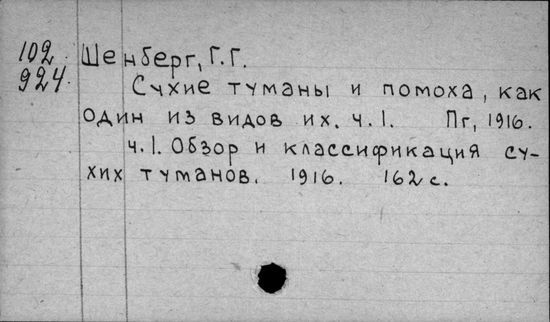 102 Шенберг, Г.Г.
924. Сухие туманы и помоха, как
один из видов их. ч.1. Пг, 1916.
ч.1. Обзор и классификация су-
хих туманов. 1916. 162 с.